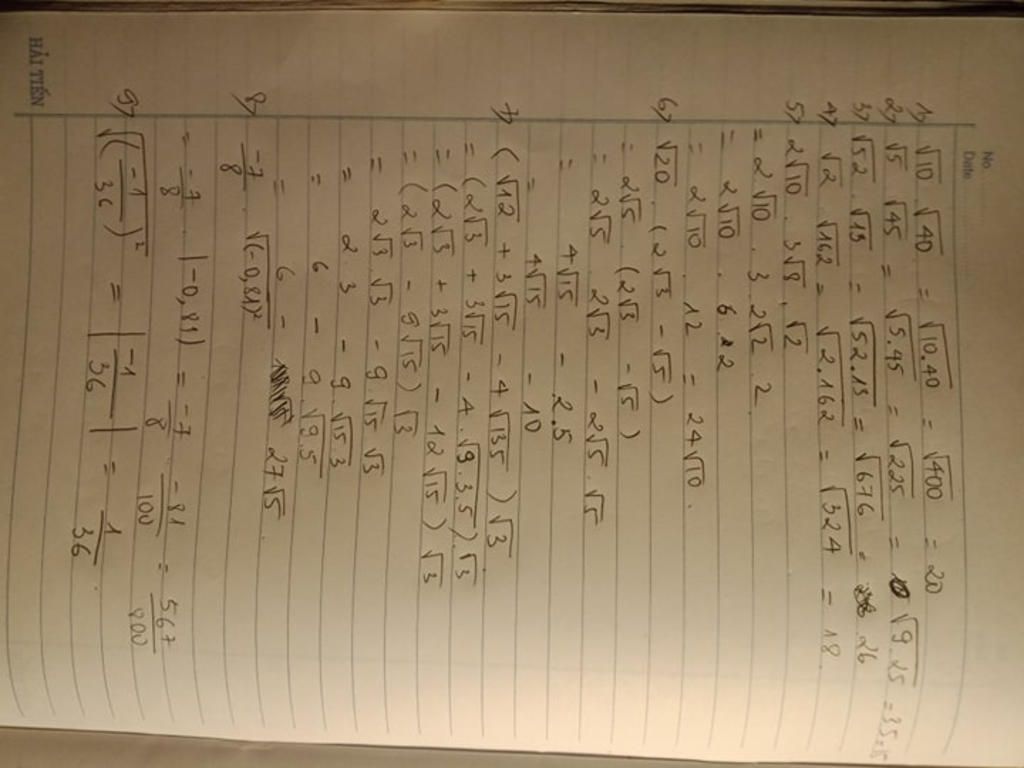 No.
Date
1) √10 . √40 = √10.40 = √400 = 20
2) √5 . √45 = √5.45 = √225 = √9.25 = 3.5 = 15
3) √52 . √13 = √52.13 = √676 = 26
4) √2 . √162 = √2.162 = √324 = 18
5) 2√10 . 3√8 . √2
= 2√10 . 3 . 2√2 . 2
= 2√10 . 6 . 2
= 2√10 . 12 = 24√10.
6) √20 . (2√3 - √5)
= 2√5 . (2√3 - √5)
= 2√5 . 2√3 - 2√5 . √5
= 4√15 - 2.5
= 4√15 - 10
7) (√12 + 3√15 - 4√135) √3
= (2√3 + 3√15 - 4.√9.3.5) . √3
= (2√3 + 3√15 - 12√15) √3
= (2√3 - 9√15) √3
= 2√3 . √3 - 9√15 . √3
= 2 . 3 - 9.√15.3
= 6 - 9.√9.5
= 6 - 27√5
8) -7/8 . √(-0,81)²
= -7/8 . |-0,81| = -7/8 . -81/100 = 567/800
9) √(-1/36)² = |-1/36| = 1/36
HẢI TIẾN